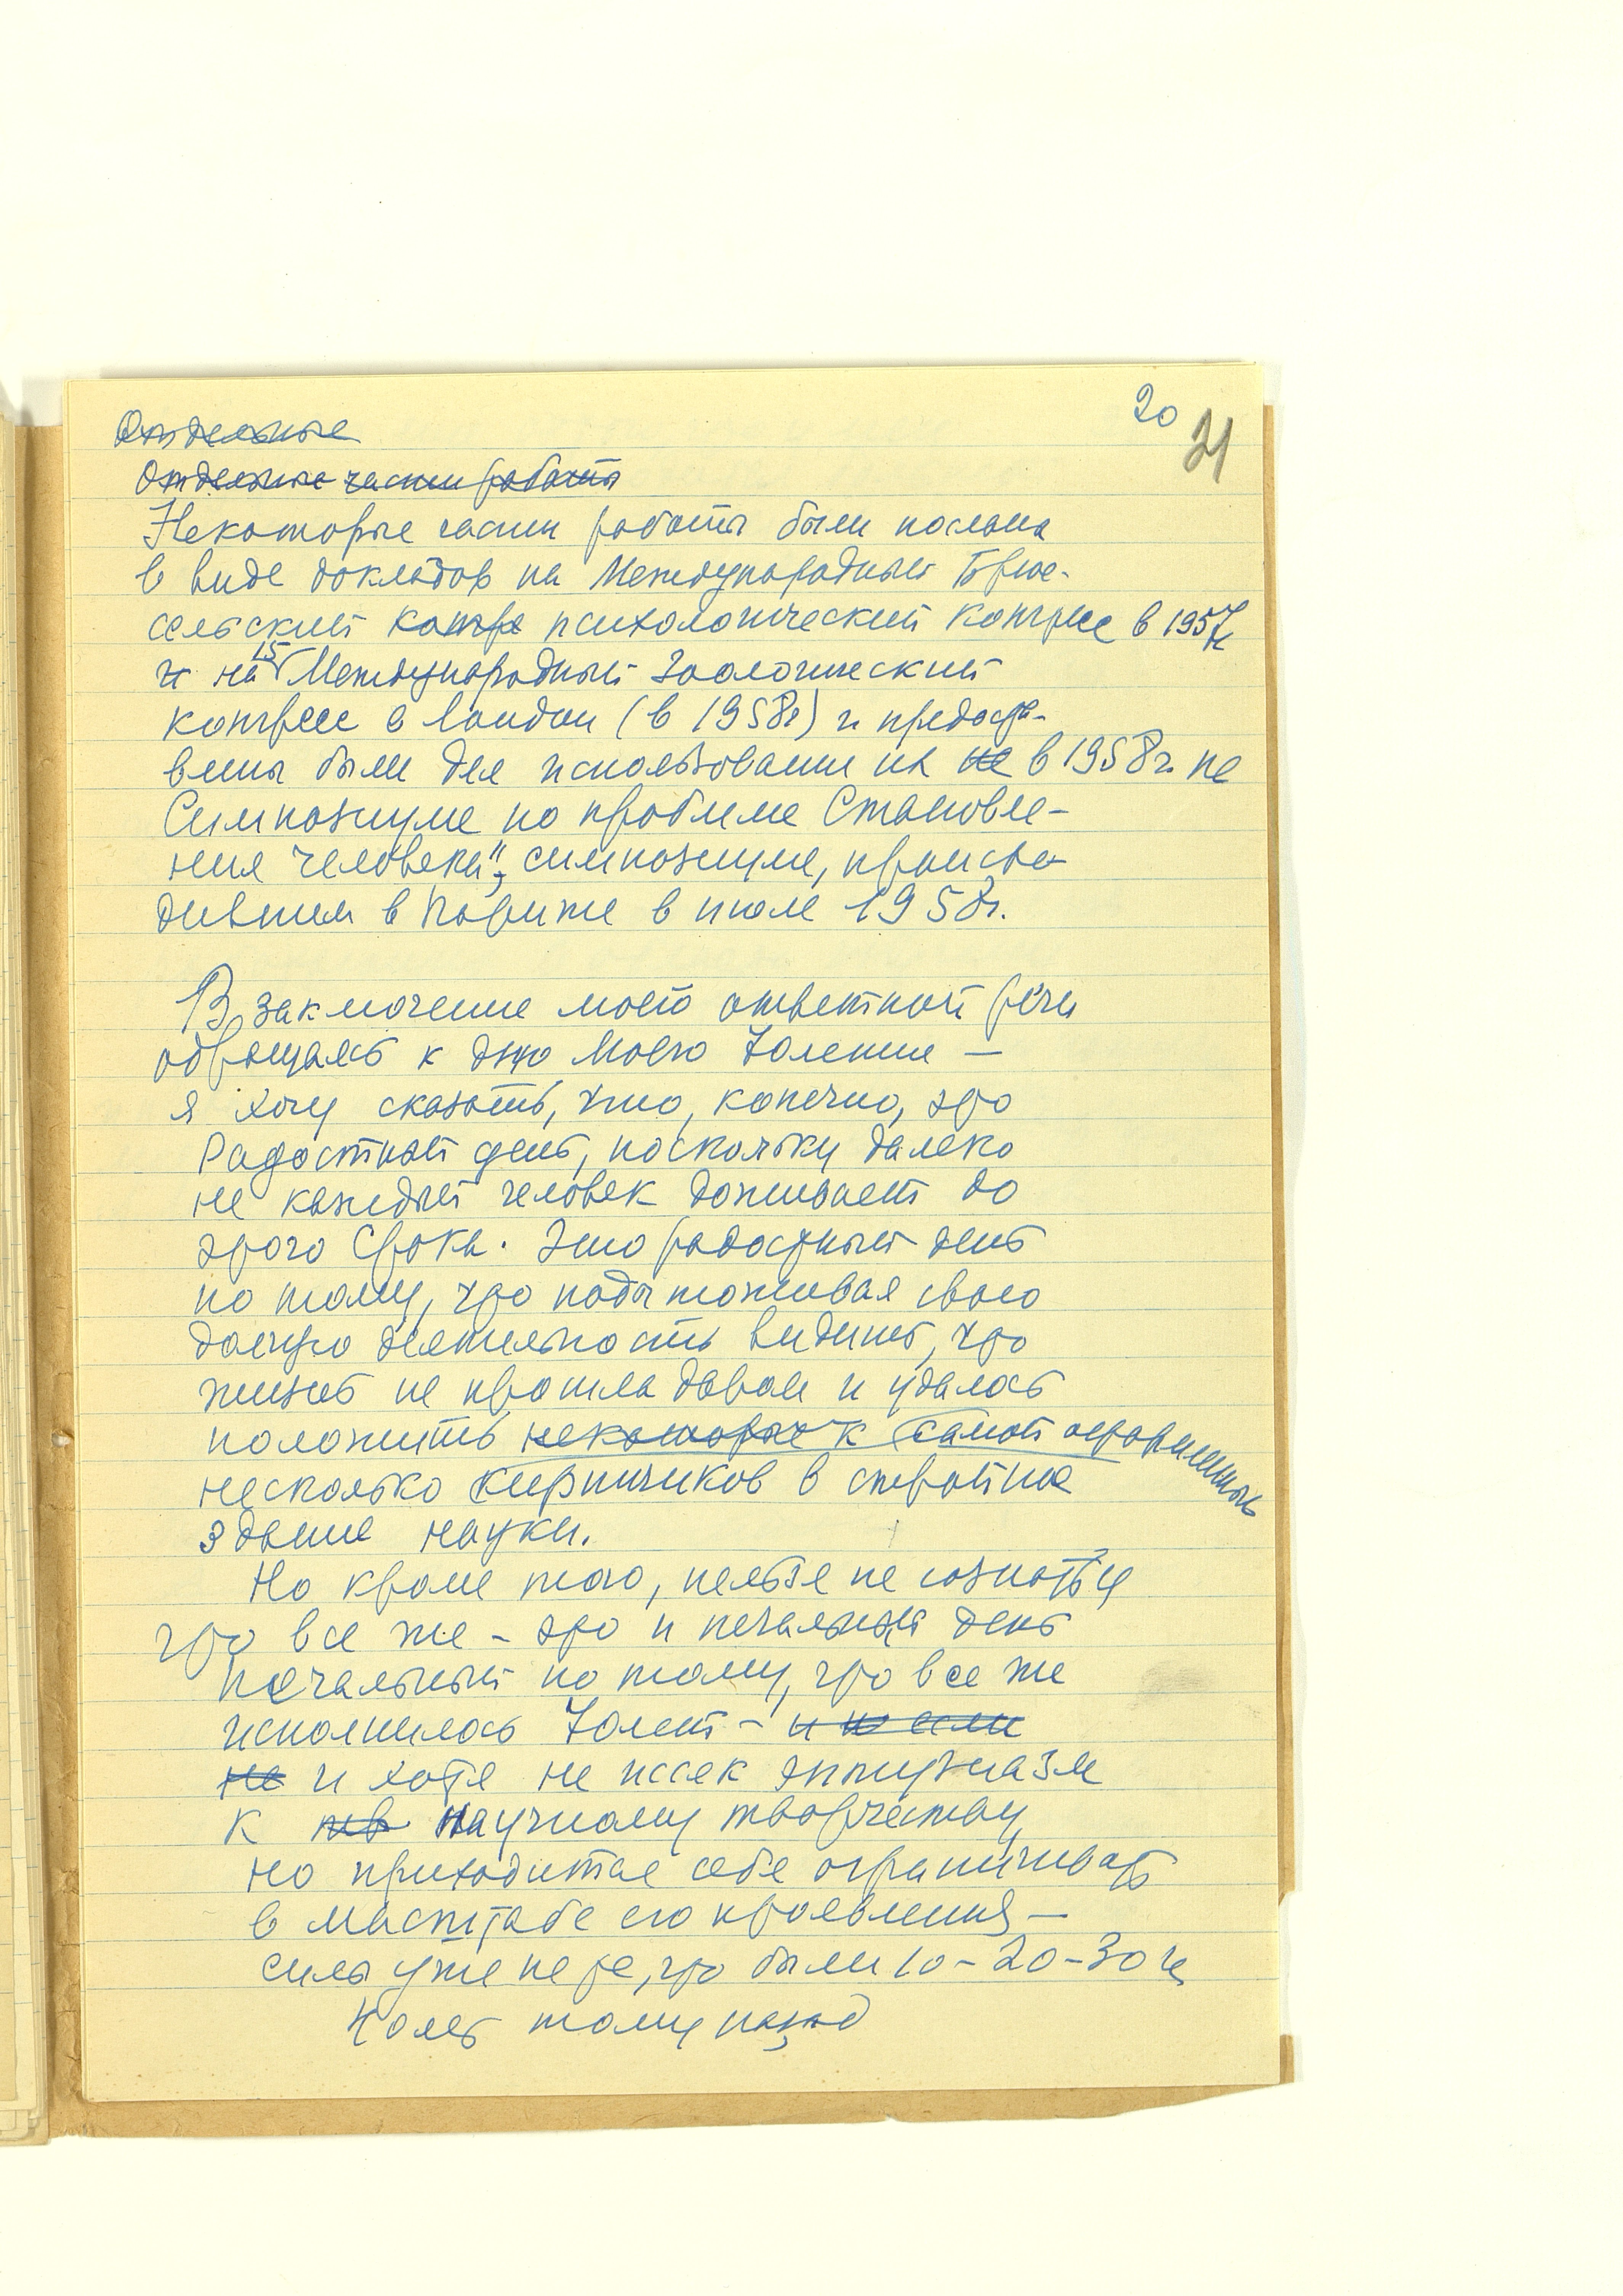 20
21
Отдельные
Отдельные части работы
Некоторые части работы были посланы
в виде докладов на Международный Брюс-
сельский конгре психологический конгресс в 1957 г.
и на 15 Международный Зоологический
конгресс в Лондон (в 1958г) и предоста-
влены были для использования их не в 1958 г. на
Симпозиуме по проблеме Становле-
ния человека", симпозиуме, происхо-
дившем в Париже в июле 1958г.
В заключение моего ответной речи
обращаясь к дню моего 70летия —
я хочу сказать, что, конечно, это
Радостный день, поскольку далеко
не каждый человек доживает до
этого срока. Это радостный день
по тому, что подытоживая свою
долгую деятельность видишь, что
жизнь не прошла даром и удалось
положить некоторые к самой
несколько кирпичиков в стройное
здание науки.
Но кроме того, нельзя не сознаться
что все же – это и печальный день
Печальный по тому, что все же
исполнилось 70 лет – и и если
не и хотя не иссяк энтузиазм
к тв научному творчеству,
но приходится себя ограничивать
в масштабе его проявления –
силы уже не те, что были 10 – 20 – 30 и
40 лет тому назад